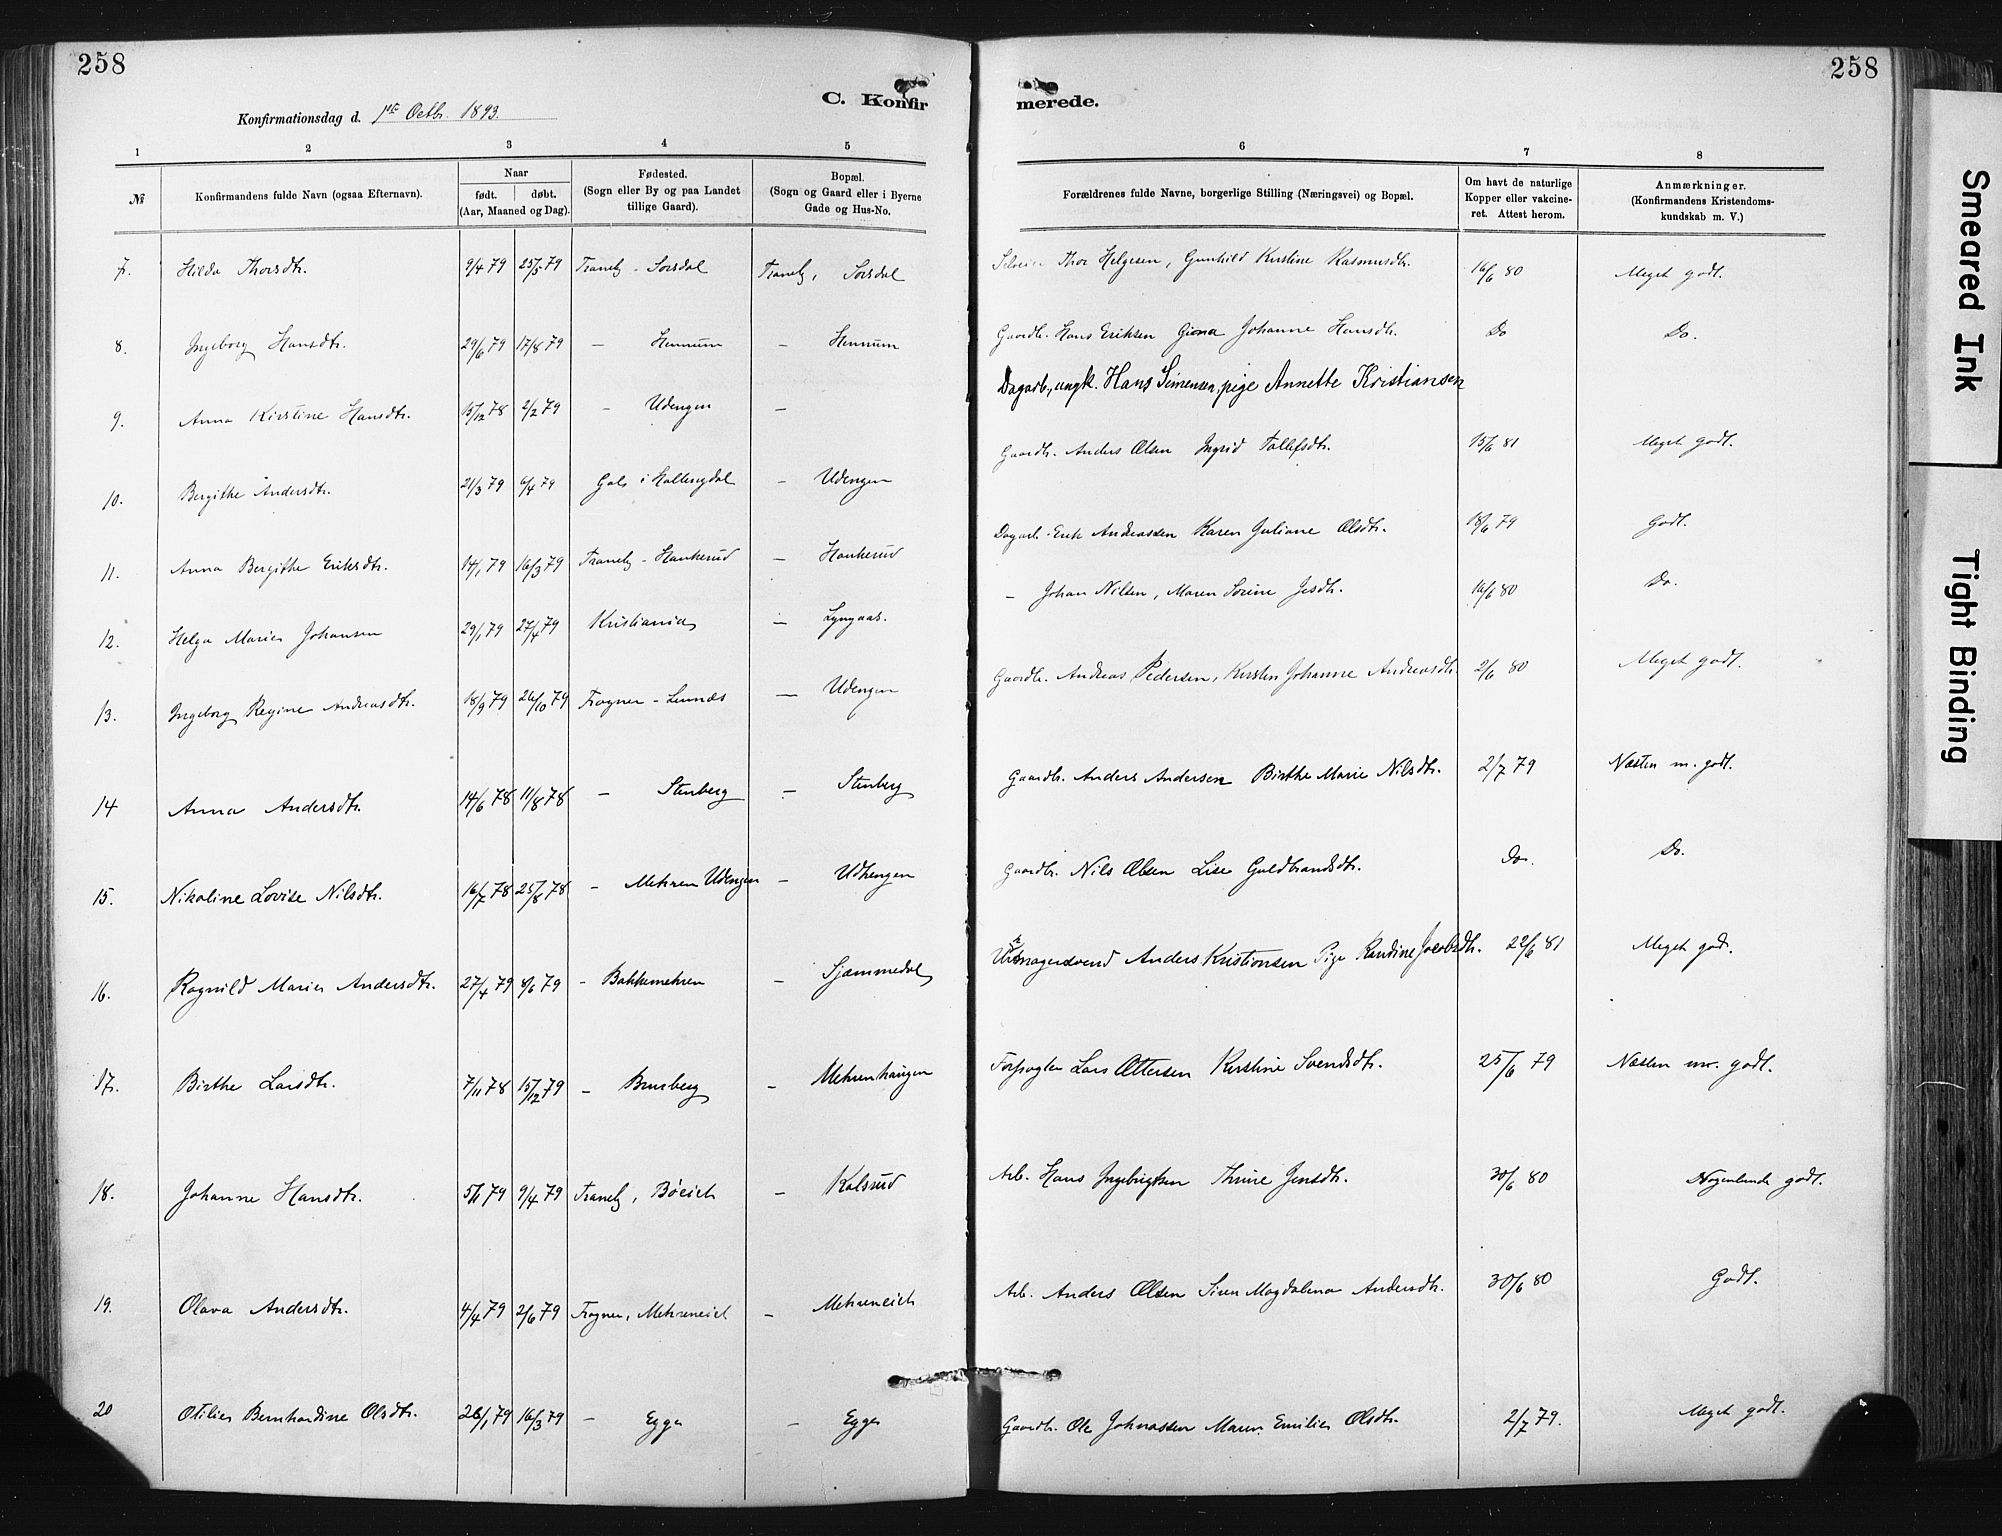 258
258
C. Konfirmerede.
Konfirmationsdag d. 1ste Octbr. 1893.
1 2 3 4 5 6 7 8
№ Konfirmandens fulde Navn (ogsaa Efternavn). Naar født. døbt. (Aar, Maaned og Dag). Fødested. (Sogn eller By og paa Landet tillige Gaard). Bopæl. (Sogn og Gaard eller i Byerne Gade og Hus-No. Forældrenes fulde Navne, borgerlige Stilling (Næringsvei) og Bopæl. Om havt de naturlige Kopper eller vakcineret. Attest herom. Anmærkninger. (Konfirmandens Kristendomskundskab m. V.)
7. Hilda Thorsdtr. 9/4 79 25/5 79 Tranby - Sørsdal Tranby, Sørsdal Thor Helgesen, Gunhild Kirstine Rasmusdtr. 16/6 80 Meget godt.
8. Ingeborg Hansdtr. 29/6 79 17/8 79 — Hennum — Hennum Gaardbr. Hans Eriksen Johanne Hansdtr. Do Do.
9. Anna Kirstine Hansdtr. 15/12 78 2/2 79 — Udengen — Dagarb., ungk. Hans Simensen, pige Annette Kristiansen
10. Bergithe Andersdtr. 21/3 79 6/4 79 Gols i Hallingdal — Udengen Gaardbr. Anders Olsen Ingrid Tollefsdtr. 15/6 81 Meget godt.
11. Anna Bergithe Eriksdtr. 14/1 79 16/3 79 Tranby - Haukerud — Haukerud Dagarb. Erik Andreassen Karen Juliane Olsdtr. 18/6 79 Godt.
12. Helga Marie Johansen 29/1 79 27/4 79 Kristiania — Lyngaas. — Johan Nilsen, Maren Sørine Jesdtr. 16/6 80 Do.
13. Ingeborg Regine Andreasdtr. 18/9 79 26/10 79 Frogner - Linnæs — Udengen Gaardbr. Andreas Pedersen, Kirsten Johanne Andreasdtr. 2/6 80 Meget godt.
14 Anna Andersdtr. 14/6 78 11/8 78 — Stenberg — Stenberg Gaardbr. Anders Andersen Birthe Marie Nilsdtr. 2/7 79 Næsten m. godt.
15. Nikoline Lovise Nilsdtr. 16/7 78 25/8 78 — Mehren Udengen — Udhengen Gaardbr. Nils Olsen Lise Guldbrandsdtr. Do. Do.
16. Ragnild Marie Andersdtr. 27/4 79 8/6 79 — Bakkemehren — Sjæmmedal Uhrmagersvend Anders Kristiansen Pige Randine Jacobsdtr. 22/6 81 Meget god.
17. Birthe Larsdtr. 7/11 78 15/12 79 — Bruberg — Mehrenhaugen Forpagter Lars Ottersen Kirstine Svendsdtr. 25/6 79 Næsten m. godt.
18. Johanne Hansdtr. 5/1 79 9/4 79 Tranby, Böeieie — Kalsrud Arb. Hans Ingebrigtsen Thrine Jensdtr. 30/6 80 Nogenlunde godt.
19. Olava Andersdtr. 4/4 79 2/6 79 Frogner, Mehreneieie — Mehreneieie Arb. Anders Olsen Siren Magdalena Andersdtr. 30/6 80 Godt.
20 Otilie Bernhardine Olsdtr. 26/1 79 16/3 79 — Egge — Egge Gaardbr. Ole Johnassen Maren Emilie Olsdtr. 2/7 79. Meget godt.
Smeared Ink
Tight Binding